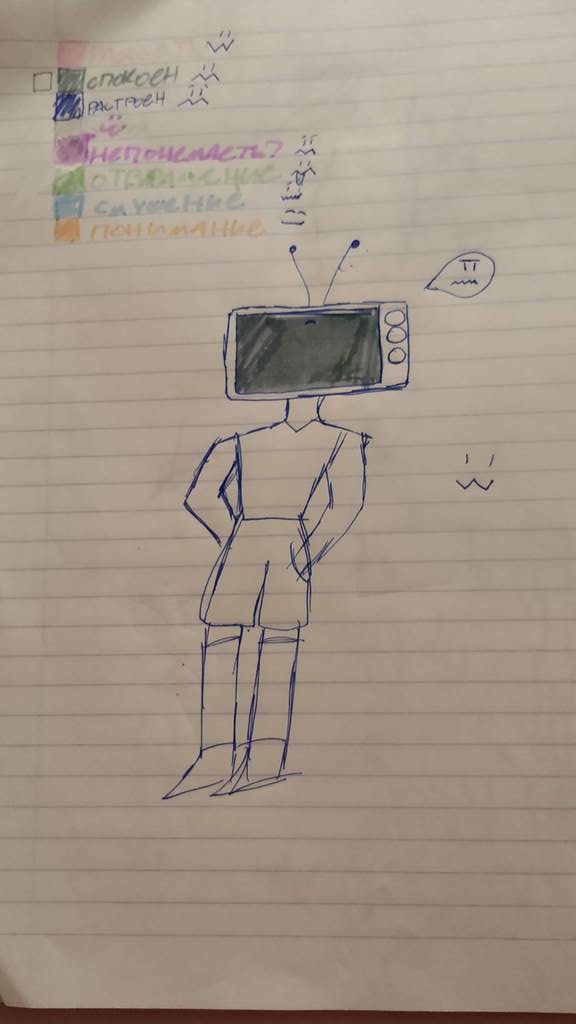 РАДОСТЬ
СПОКОЕН
РАСТРОЕН
НЕПОНЕМАСТЬ?
ОТВРАЩЕНИЕ
СМУЩЕНИЕ
ПОНИМАНИЕ